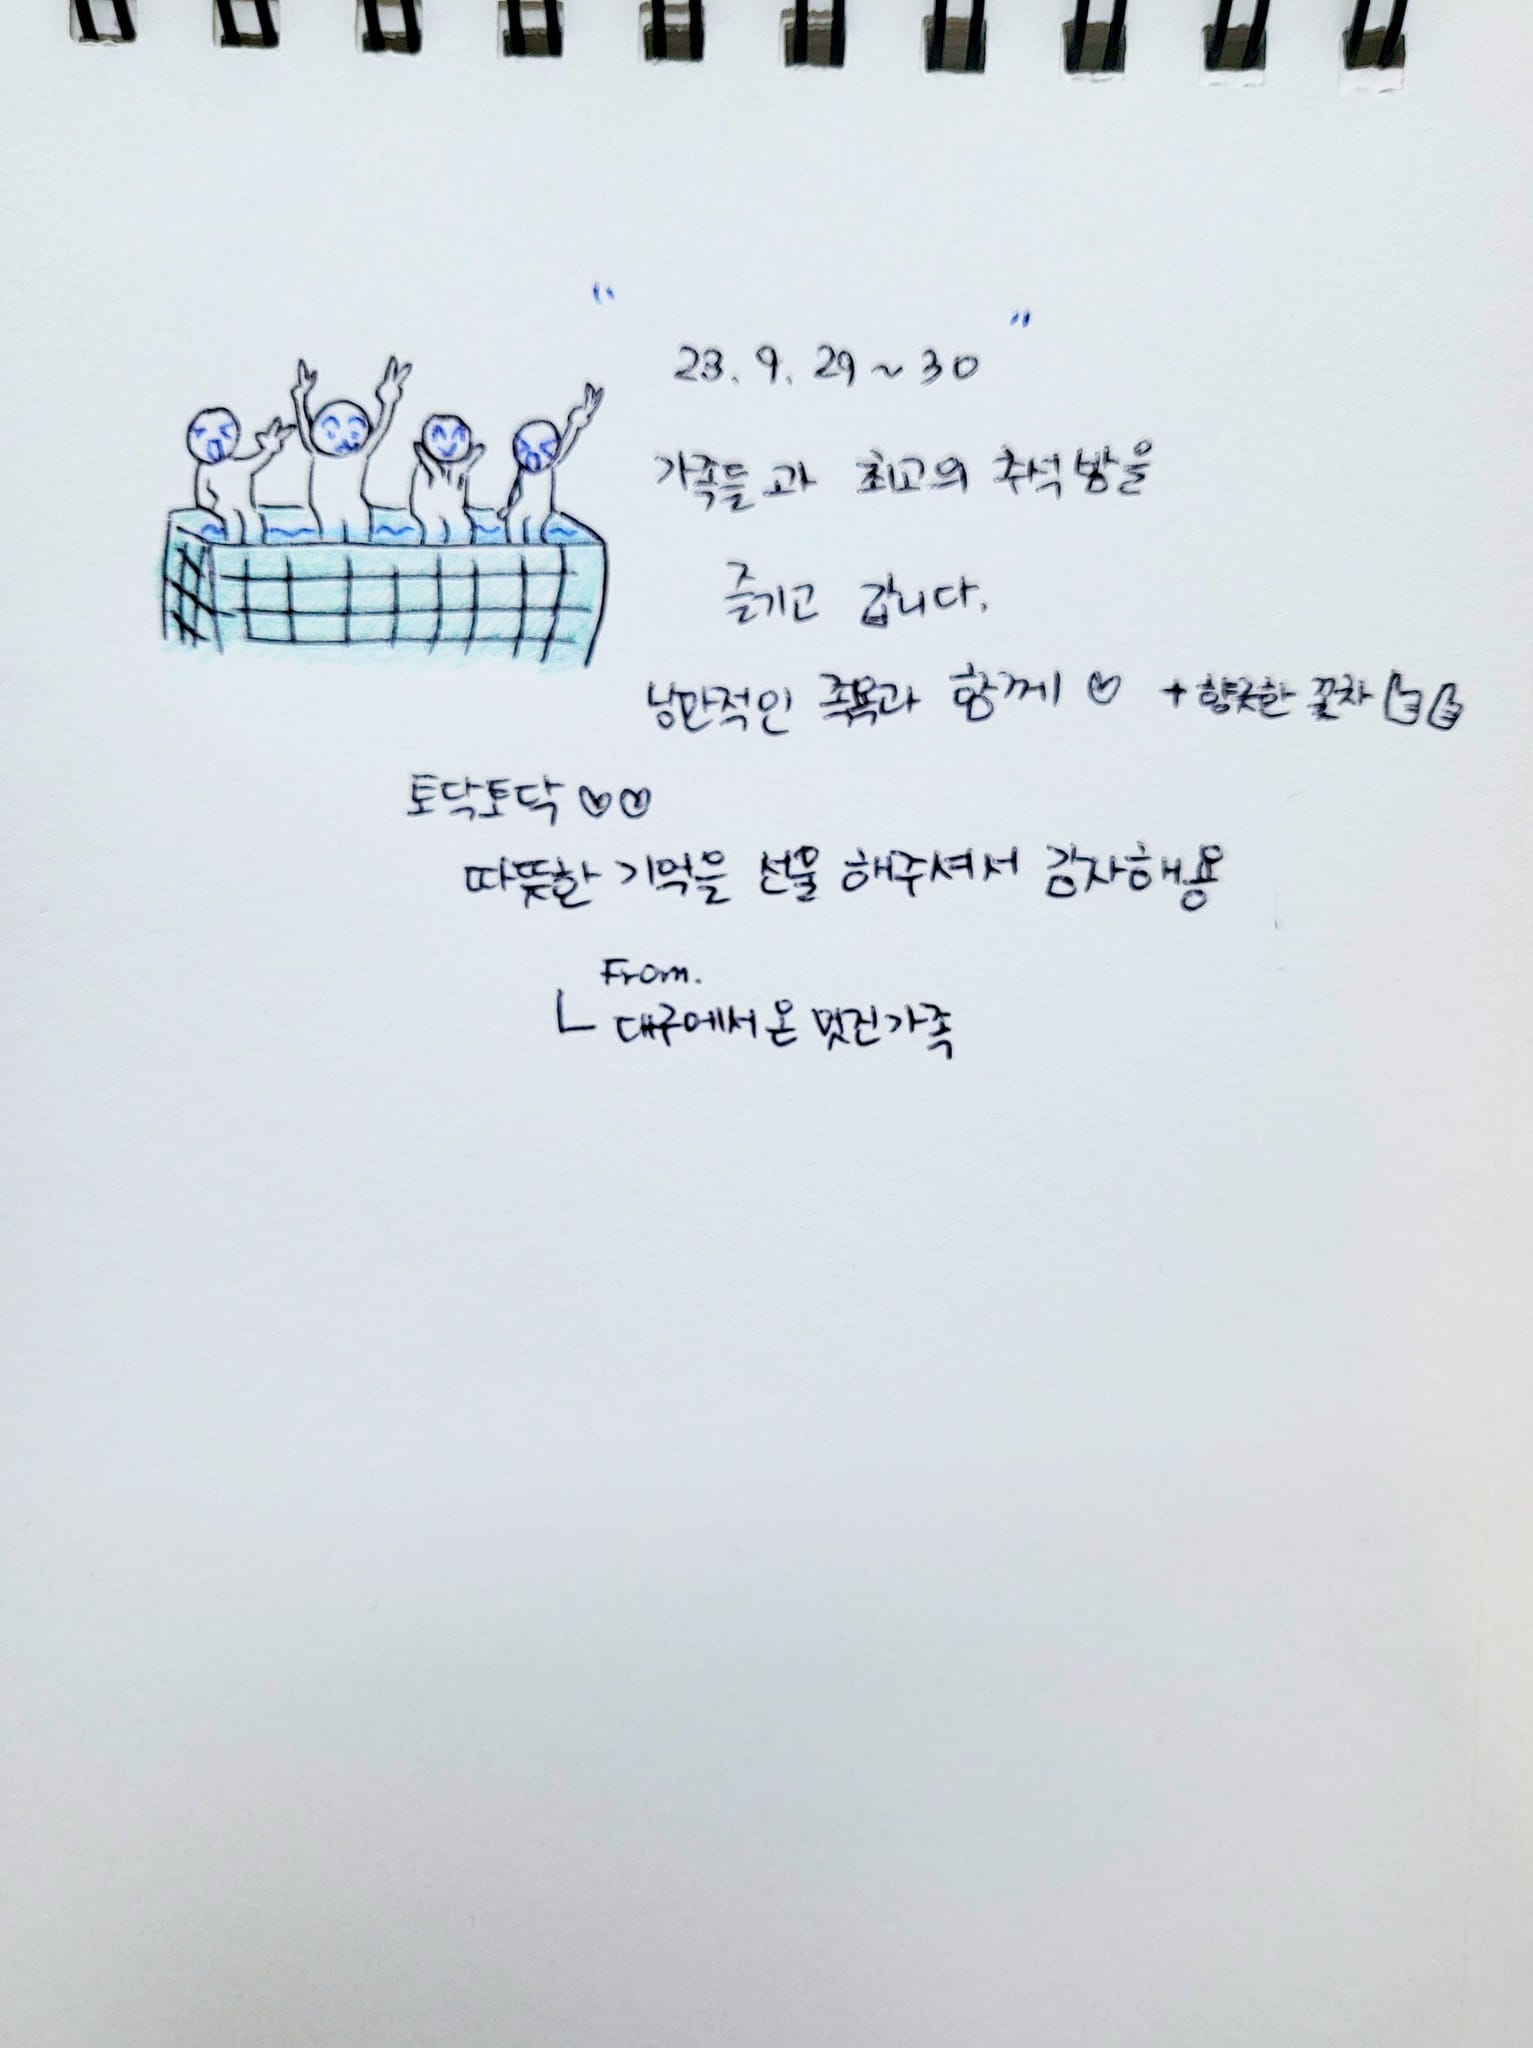 "23. 9. 29 ~ 30"
가족들과 최고의 추석밤을
즐기고 갑니다.
낭만적인 족욕과 함께 ♡ + 향긋한 꽃차 👍👍
토닥토닥 ♡♡
따뜻한 기억을 선물 해주셔서 감자해용
From.
ㄴ 대구에서 온 멋진가족